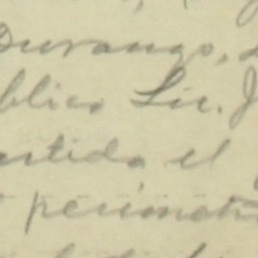 Durango,
blico Lic. J
artido el
perimetr